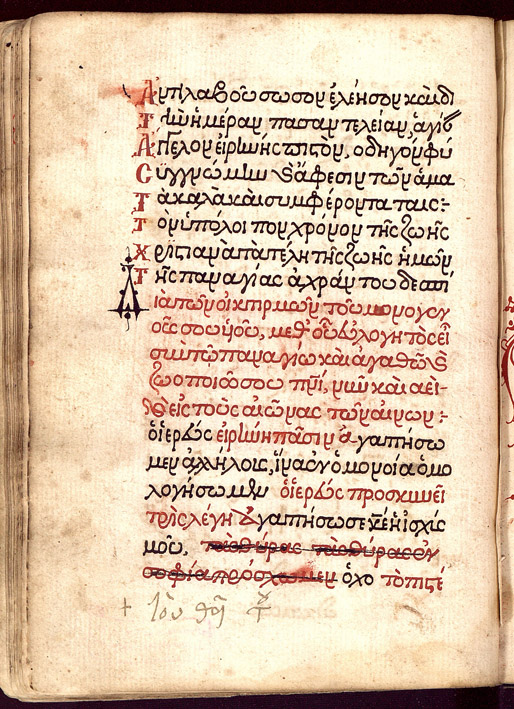 Ἀντιλαβοῦ σωσον ἐλέησον καὶ δι
Τὴν ἡμέραν πασαν τελείαν, ἁγί
Ἄγγελον εἰρήνης πιστον, ὁδηγὸν φύ
Συγγνώμην κ ἄφεσιν τῶν ἁμα
Τὰ καλὰ καὶ συμφέροντα ταις :
Τὸν ὑπόλοιπον χρονον τῆς ζωῆς
Χριστιανὰ τὰ τέλη τῆς ζωῆς ἡμῶν
Τῆς παναγίας ἀχράντου δεσποί
Διὰ τῶν οἰκτιρμῶν τοῦ μονογενοῦ
σου υἱοῦ, μεθ οὗ εὐλογητὸς εἶ
σὺν τῷ παναγίω καὶ ἀγαθῶ κ
ζωοποιῶ σου πνι, νῦν καὶ αεὶ
κ εἰς τοὺς αἰῶνας τῶν αἰώνων :
ὁ ἱερεὺς εἰρήνη πᾶσιν ἀγαπήσω
μεν ἀλλήλοις, ἵνα ἐν ὁμονοία ὁμο
λογήσωμεν ὁ ἱερεὺς προσκυνεῖ
τρὶς λέγη Ἀγαπήσω σε κε ἡ ἰσχίς
μοῦ, τὰς θύρας τὰς θύρας ἐν
σοφία πρόσχωμεν ὁ χο τὸ πιστέ